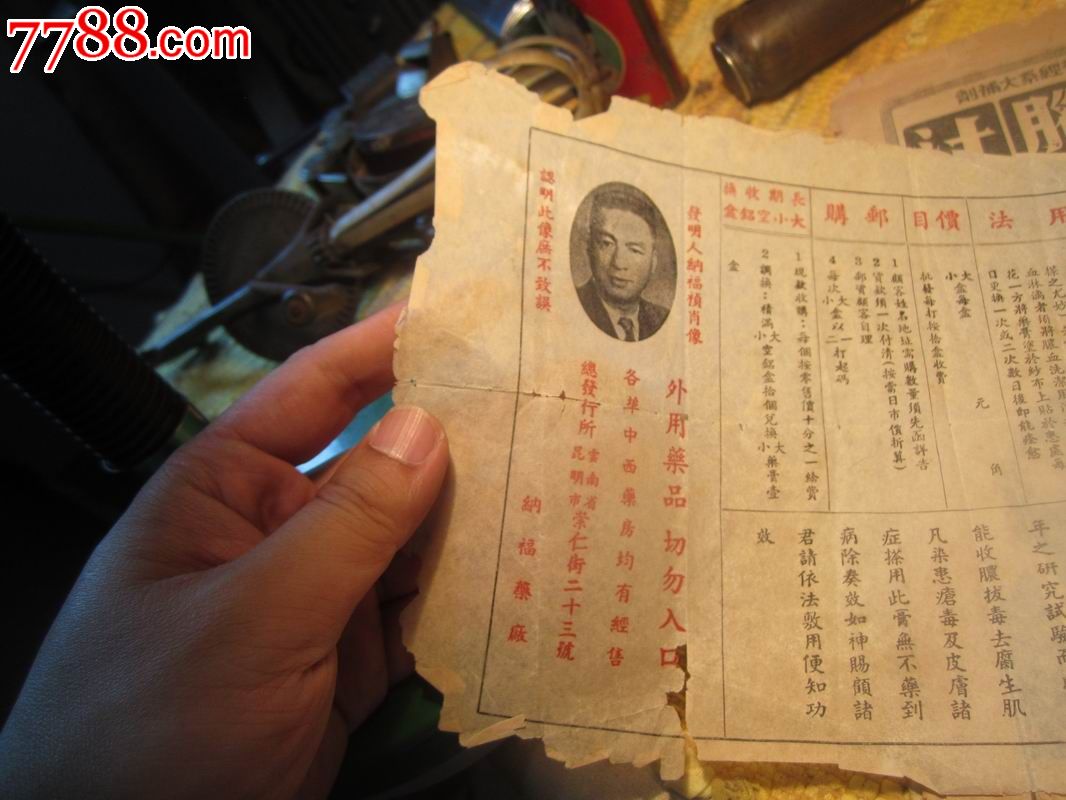 7788.com
經系大補劑
用法
價目
郵購
長期收換
大小空鋁盒
血淋漓者須將膿血洗潔用
花一方將藥膏塗於紗布上貼於患處每
日更換一次或二次數日後即能痊愈
大盒每盒 元 角
小
批發每打按拾盒收費
1 顧客姓名地址需購數量須先函詳告
2 貨款須一次付清(按當日市價折算)
3 郵費顧客自理
4 每次大盒以一打起碼
小 二
1 現款收購:每個按零售價十分之一給費
2 調換:積滿大小空鋁盒拾個兌換大小藥膏壹盒
年之研究試驗而
能收膿拔毒去腐生肌
凡染患瘡毒及皮膚諸
症搽用此膏無不藥到
病除奏效如神賜顧諸
君請依法敷用便知功
效
發明人納福禎肖像
認明此像庶不致誤
外用藥品切勿入口
各埠中西藥房均有經售
總發行所雲南省昆明市崇仁街二十三號
納福藥廠